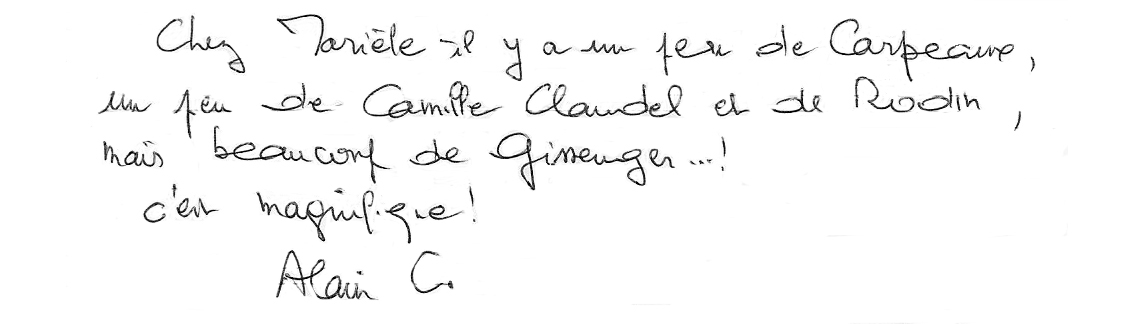 Chez Marièle il y a un peu de Carpeaux,
un peu de Camille Claudel et de Rodin,
mais beaucoup de Gissenger...!
c'est magnifique!
Alain C.